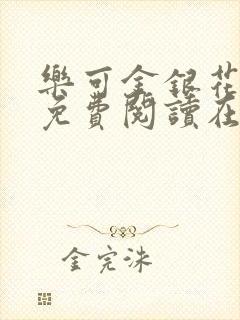 樂可金銀花
免費閱讀在
金完洙